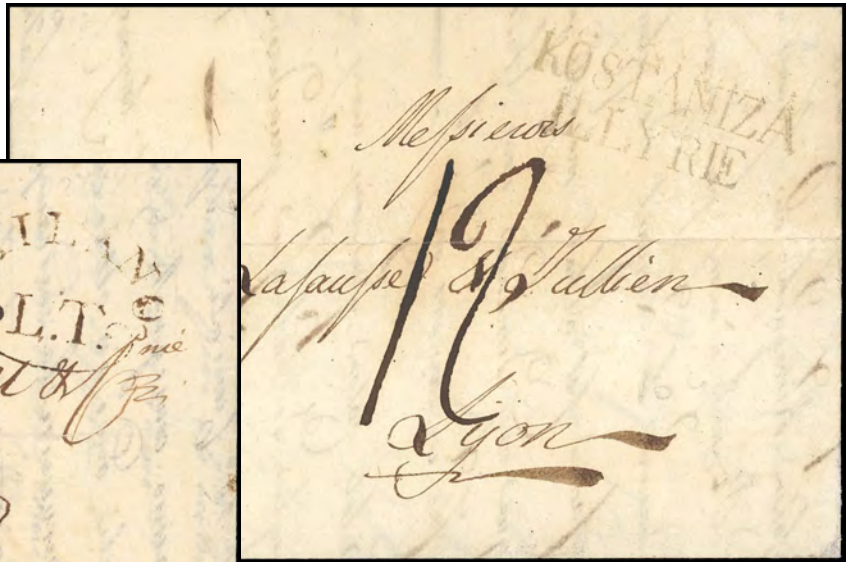 KOSTANIZA
ILLYRIE
Messieurs
Lafausse & Jullien
12
Lyon
MILANO
L.T.